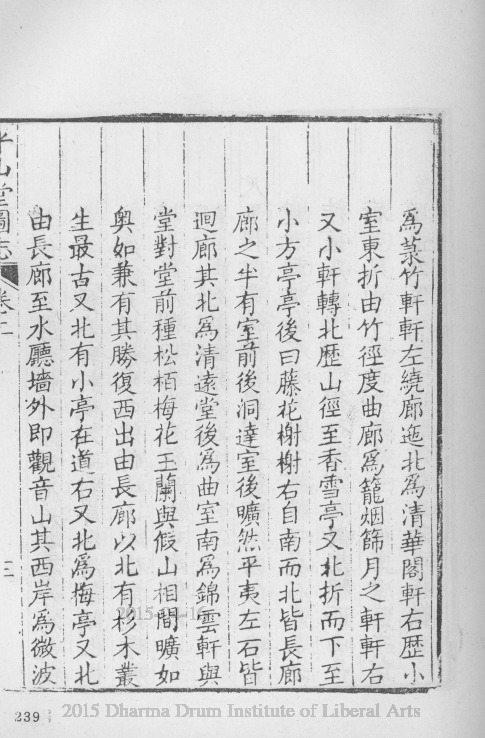 為菉竹軒軒左繞廊迤北為清華閣軒右歷小
室東折由竹徑度曲廊為籠烟篩月之軒軒右
又小軒轉北歷山徑至香雪亭又北折而下至
小方亭亭後曰藤花榭榭右自南而北皆長廊
廊之半有室前後洞達室後曠然平夷左右皆
迴廊其北為清遠堂後為曲室南為錦雲軒與
堂對堂前種松栢梅花玉蘭與假山相間曠如
奥如兼有其勝復西出由長廊以北有杉木叢
生最古又北有小亭在道右又北為梅亭又北
由長廊至水廳墻外即觀音山其西岸為微波
平山堂圖志 卷二 三
239
2015 Dharma Drum Institute of Liberal Arts